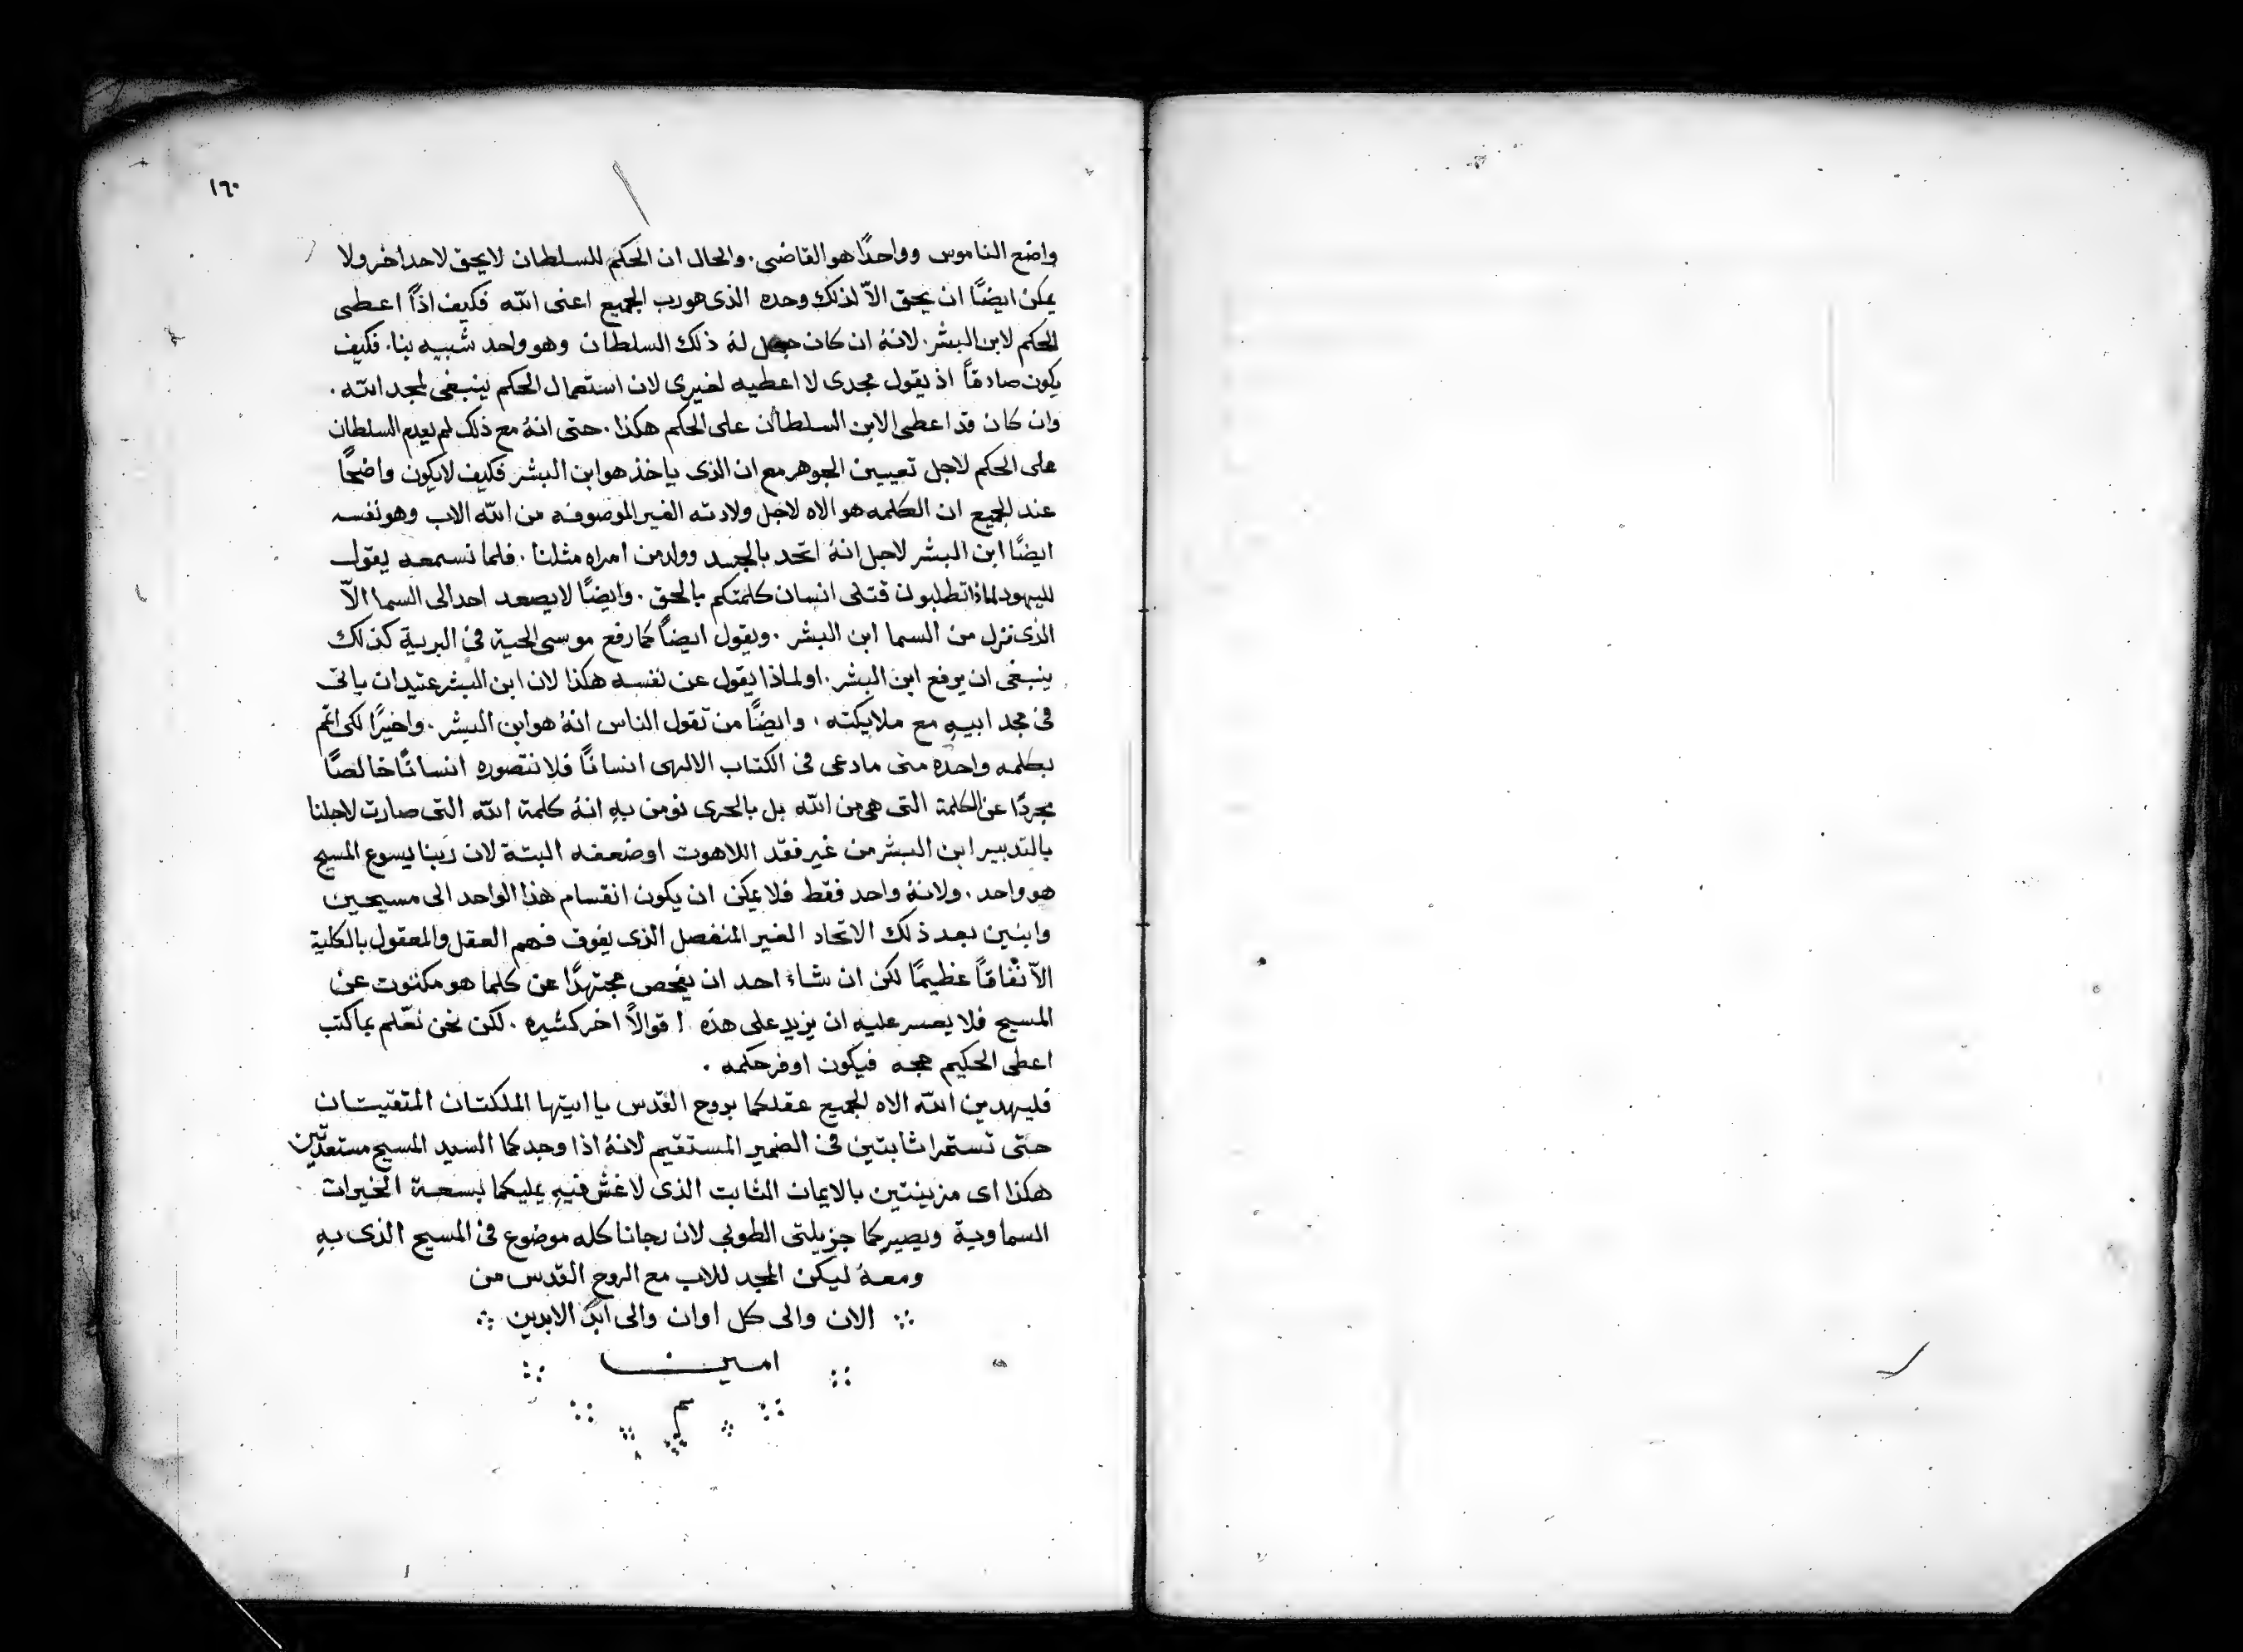 ١٦٠
واضع الناموس وواحدًا هو القاضى. والحال ان الحكم للسلطان لايحق لاحد اخر ولا
يمكن ايضًا ان يحق الاّ لذلك وحده الذى هو رب الجميع اعنى الله فكيف اذًا اعطى
الحكم لابن البشر. لانهُ ان كان حصل لهُ ذلك السلطان وهو واحد شبيه بنا. فكيف
يكون صادقًا اذ يقول مجدى لا اعطيه لغيرى لان استعمال الحكم ينبغى لمجد الله.
وان كان قد اعطى الابن السلطان على الحكم هكذا. حتى انهُ مع ذلك لم يعدم السلطان
على الحكم لاجل تعيين الجوهر مع ان الذى ياخذ هو ابن البشر فكيف لايكون واضحًا
عند الجميع ان الكلمه هو الاه لاجل ولادته الغير الموصوفه من الله الاب وهو نفسه
ايضًا ابن البشر لاجل انهُ اتحد بالجسد وولد من امراه مثلنا. فلما نسمعه يقول
لليهود لماذا تطلبون قتلى انسان كلمتكم بالحق. وايضًا لايصعد احد الى السما الاّ
الذى نزل من السما ابن البشر. ويقول ايضًا كما رفع موسى الحية فى البرية كذلك
ينبغى ان يرفع ابن البشر. اولماذا يقول عن نفسه هكذا لان ابن البشر عتيد ان ياتى
فى مجد ابيهِ مع ملايكته. وايضًا من تقول الناس انهُ هو ابن البشر. واخيرًا لكى اتمم
بكلمه واحدة متى مادعى فى الكتاب الالهى انسانًا فلا نتصوره انسانًا خالصًا
مجردًا عن الكلمة التى هى من الله بل بالحرى نومن بهِ انهُ كلمة الله التى صارت لاجلنا
بالتدبير ابن البشر من غير فقد اللاهوت اوضعفه البتة لان ربنا يسوع المسيح
هو واحد. ولانهُ واحد فقط فلا يمكن ان يكون انقسام هذا الواحد الى مسيحين
وابنين بعد ذلك الاتحاد الغير المنفصل الذى يفوق فهم العقل والمعقول بالكلية
الاّ نفاقًا عظيمًا لكن ان شاء احد ان يفحص مجتهدًا عن كلما هو مكتوت عن
المسيح فلا يعسر عليه ان يزيد على هذه اقوالاً اخر كثيره. لكن نحن نعّلم بماكتب
اعطى الحكيم حجه فيكون اوفر حكمه.
فليهدين الله الاه الجميع عقلكما بروح القدس يا ايتها الملكتان المتقيتان
حتى تستمرا ثابتين فى الضمير المستقيم لانهُ اذا وجدكما السيد المسيح مستعدّتين
هكذا اى مزينتين بالايمان الثابت الذى لاغش فيهِ يمليكما بسعة الخيرات
السماوية ويصيركما جزيلتى الطوبى لان رجانا كله موضوع فى المسيح الذى بهِ
ومعهُ ليكن المجد للاب مع الروح القدس من
الان والى كل اوان والى ابد الابدين
امين